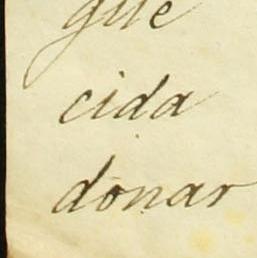 que
cida
donar